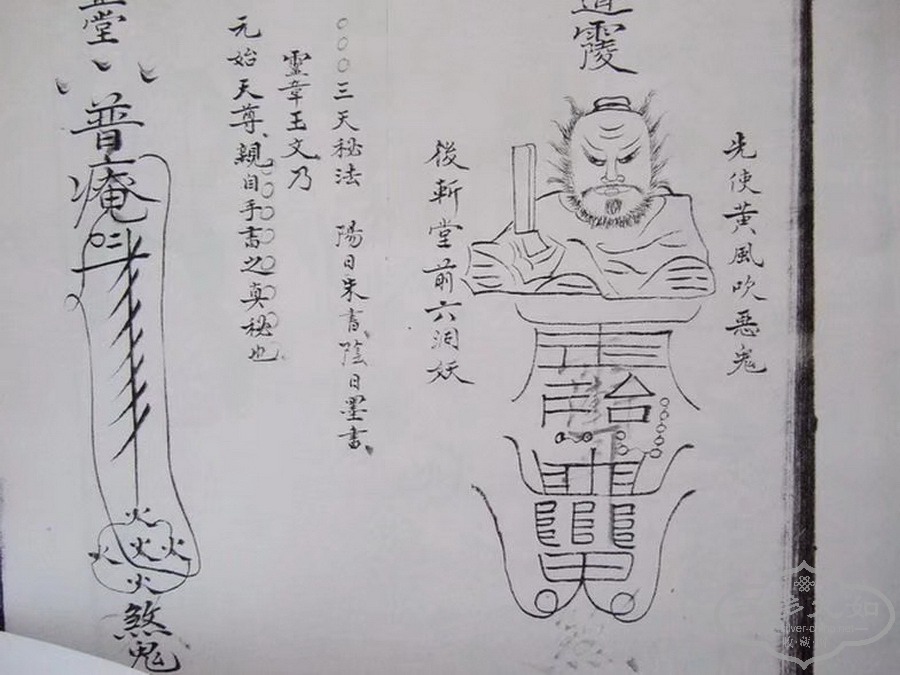 道靈
先使黃風吹惡鬼
後斬堂前六洞妖
三天秘法 陽日朱書陰日墨書
靈章王文乃
元始天尊親自手書之真秘也
堂
普庵
火
火 火 火
火
煞鬼